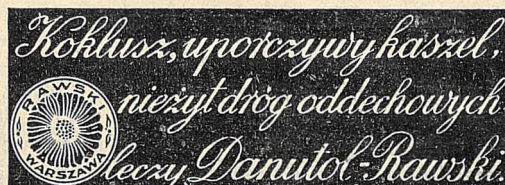 Koklusz, uporczywy kaszel,
nieżyt dróg oddechowych
leczy Danutol-Rawski.
RAWSKI
WARSZAWA